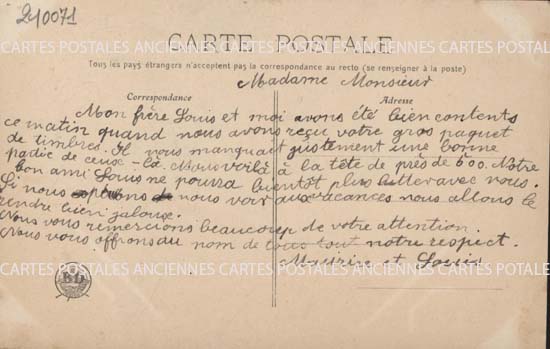 210071
CARTES POSTALES ANCIENNES CARTES POSTALES ANCIENNES CARTES POSTALES
CARTE POSTALE
Tous les pays étrangers n'acceptent pas la correspondance au recto (se renseigner à la poste)
Madame Monsieur
Correspondance
Adresse
Mon frère Louis et moi avons été bien contents
ce matin quand nous avons reçu votre gros paquet
de timbres. Il vous manquait justement une bonne
partie de ceux-là. Nous voilà à la tête de près de 600. Notre
bon ami Louis ne pourra bientôt plus lutter avec nous.
Si nous nous voir aux vacances nous allons te
rendre bien jaloux.
Nous vous remercions beaucoup de votre attention.
Nous vous offrons au nom de tous tout notre respect.
CARTES POSTALES ANCIENNES CARTES POSTALES ANCIENNES CARTES POSTALES
Maurice et Louis
BD